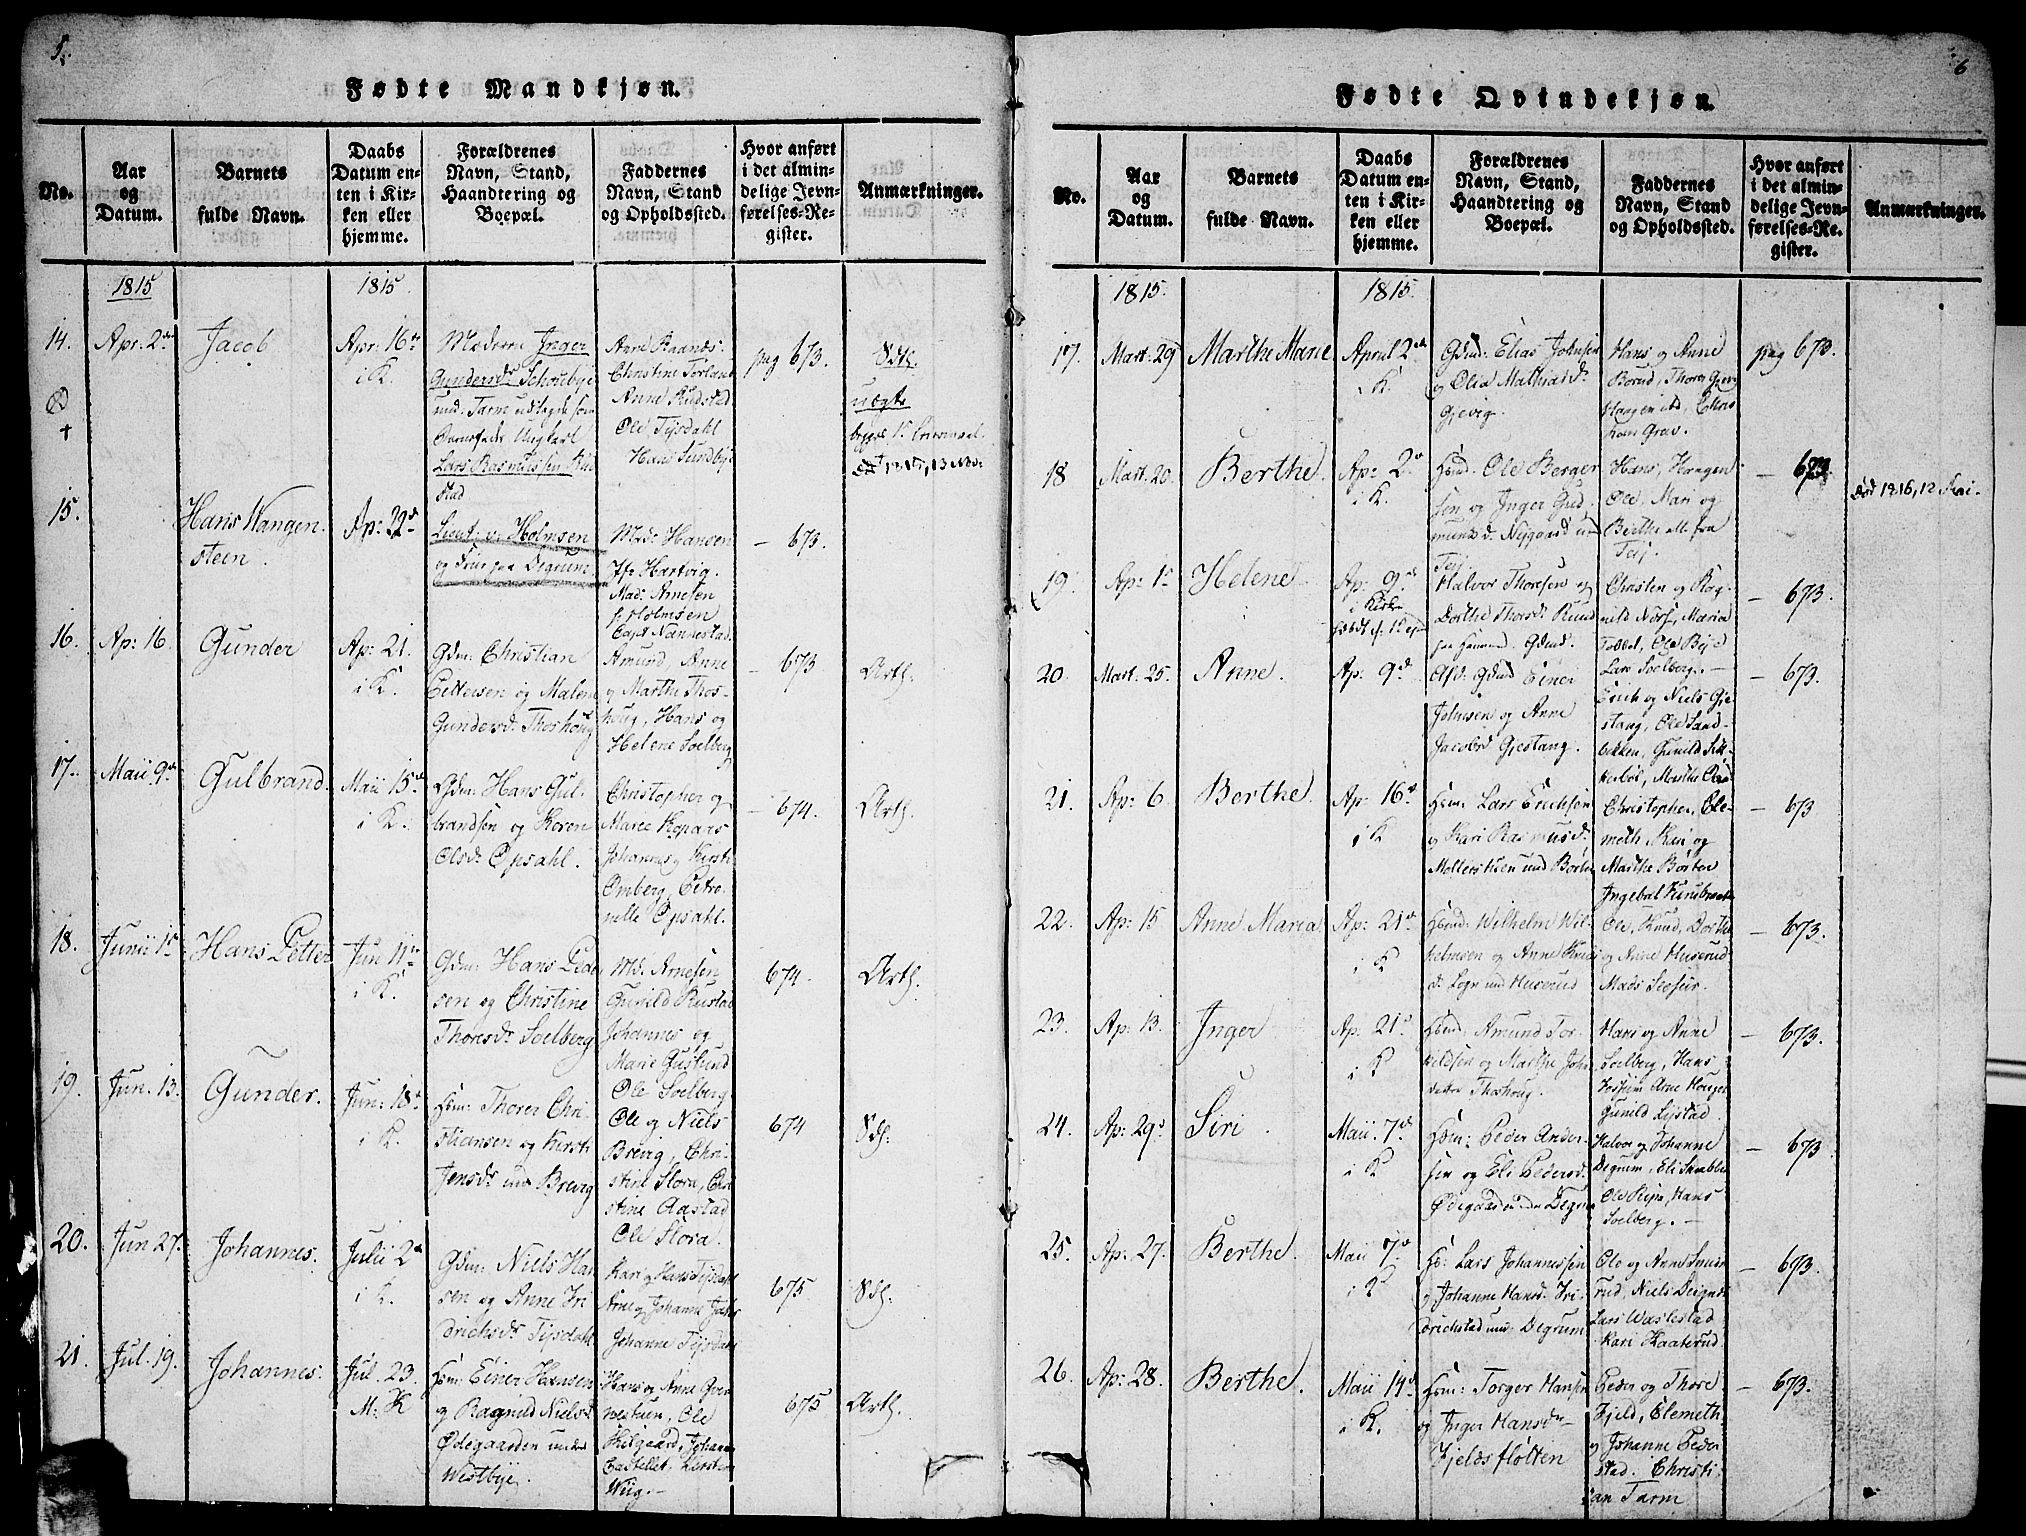 5.
Fødte Mandkjøn.
No.
Aar
og
Datum.
Barnets
fulde Navn.
Daabs
Datum en-
ten i Kir-
ken eller
hjemme.
Forældrenes
Navn, Stand,
Haandtering og
Boepæl.
Faddernes
Navn, Stand
og Opholdssted.
Hvor anført
i det almin-
delige Jevn-
førelses-Re-
gister.
Anmærkninger.
1815
1815
14.
Apr. 2
Jacob
Apr. 16
i K.
Moderen Inger
Gundersd. Schoubye
und. Tarm udlagde som
Barnefader Ungkarl
Lars Rasmussen
stad
Anne
Christine Sorland
Anne Rudstad
Ole Tÿsdahl
Hans Sundbye
pag 673.
Sdl.
uægte
15.
Hans Wangen-
steen
Ap: 22
Lieut. v. Holmsen
og Frue paa Degrum
Mde Hansen
Jfr Hartvig.
Mad: Arnesen
Hr Holmsen
Capt Nannestad
— 673.
16.
Ap: 16.
Gunder
Ap: 21.
i K.
Gdm: Christian
Pettersen og Malene
Gundersd. Thoshoug
Amund, Anne
og Marthe Thos-
houg, Hans og
Helene Soelberg
— 673
Arth.
17.
Maii 9
Gulbrand.
Maii 15
i K.
Gdm: Hans Gul-
brandsen og Karen
Olsd. Opsahl.
Christopher og
Maree Kopaas
Johannes og Kirsti
Omberg, Petro-
nelle Opsahl.
— 674.
Arth.
18.
Junii 1
Hans Petter
Jun 11
i K.
Gdm: Hans Peder
sen og Christine
Thoresd. Soelberg
Md. Arnesen
Gunild Rustad
Johannes og
Marie Guslund
Ole Soelberg
674.
Arth.
19.
Jun. 13.
Gunder.
Jun: 18
i K.
Hsm: Thorer Chri-
stiansen og Kirsti
Jensd. und Brevig
Ole og Niels
Brevig, Chri-
stine Slora,
stine Aastad
Ole Slora.
674
Sdl:
20.
Jun 27.
Johannes.
Julii 2
i K.
Gdm: Niels Han
sen og Anne Fri
drichsd. Tÿsdahl
Kari og Hans Tÿsdahl
Arne og Johanne
Johanne Tÿsdahl
675
Sdl:
21.
Jul. 19.
Johannes.
Jul. 23.
M: K
Hsm: Einer Hansen
og Ragnild Nielsd.
Ødegaarden under
Westbye.
Hans og Anne
Ole
Kilgaard, Johann
Castellet, Kirsten
Wiig.—
675
Arth.
6
Fødte Qvindekjøn.
No.
Aar
og
Datum.
Barnets
fulde Navn.
Daabs
Datum en-
ten i Kir-
ken eller
hjemme.
Forældrenes
Navn, Stand,
Haandtering og
Boepæl.
Faddernes
Navn, Stand
og Opholdssted.
Hvor anført
i det almin-
delige Jevn-
førelses-Re-
gister.
Anmærkninger.
1815.
1815.
17.
Mart: 29
Marthe Marie
April 2
i K.
Gdm: Elias Johnsen
og Olia Mathiasd.
Gjevig.
Hans og Anne
Borud, Thore
pag 673.
18
Mart. 20.
Berthe
Ap: 2
i K.
Hsmd: Ole Berger
sen og Inger Gud
mundsd. Nÿgaard und
Teÿ.
Hans, Haagen
Ole, Mari og
Berthe alle fra
Teÿ.
— 673.
død 1816, 12 Mai.
19.
Ap: 1
Helene
Ap: 9
i Kirken
Halvor Thoresen og
Dorthe Thorsd. Rund
Christen og Rag-
nild Norst, Maria
Ole Bye
Lars Soelberg.—
— 673.
20.
Mart: 25.
Anne.
Ap: 9
Gdmd Einer
Johnsen og Anne
Jacobsd Gjestang.
Erich og Niels Gje-
stang, Ole Sand-
bekken, Gunild Sik-
kerbøl, Marthe
— 673.
21.
Ap: 6
Berthe.
Ap: 16
i K
Hsm: Lars Erichsen
og Kari Rasmusd.
Mollerstuen und Børte
Christopher, Ole-
meth Kari og
Marthe Børter
Ingebal
— 673
22.
Ap: 15
Anne Maria
Ap: 21
i K
Hsmd: Wilhelm Wil-
helmsen og Anne Knus
d. Logn und Huserud
Ole, Knud, Dorthe
og Anne Huserud
Mads
— 673.
23.
Ap: 13.
Inger
Ap: 21
i K
Hsmd: Amund Tor
kildsen og Marthe Johns
datter Thoshoug.
Hans og Anne
Soelberg, Hans
Gunild
— 673.
24.
Ap: 29
Siri
Maii 7
i K
Hsm: Peder Ander-
sen og Eli Pedersd
Ødegaarden under Degrum
Halvor og Johanne
Degrum, Eli
Ole Hans
Soelberg.—
— 673
25.
Ap: 27.
Berthe.
Maii 7
i K
H: Lars Johannessen
og Johanne Hansd. Fri
drichstad und. Degrum
Ole og Anne
rud, Niels Degrum
Lars Wastestad
Kari Kaaterud.
— 673.
26.
Ap: 28.
Berthe.
Maii 14
i K.
Hsm: Torger Hansen
og Inger Hansdr
Fjeldsfløtten
Peder og Thore
Fjeld, Elemeth
og Johanne Peder
stad. Christi
an Tarm
— 673.